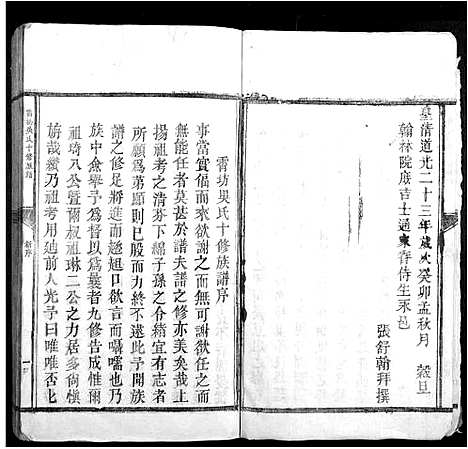 皇清道光二十三年歲次癸卯孟秋月 穀旦
翰林院庶吉士通家眷侍生永邑
張舒翰拜撰
霄坊吳氏十修族譜序
事當實偪而來欲謝之而無可謝欲任之而
無能任者莫甚於譜夫譜之修亦美矣哉上
揚祖考之清芬下啟子孫之令緒宜有志者
所願為第願則已歷而力終不逮此予開族
譜之修足將進而趑趄口欲言而囁嚅也乃
族中僉舉予為督以為曩者九修告成惟爾
祖琦八公暨爾叔祖琳二公之力居多尚極
旃哉纘乃祖考用迪前人光予曰唯唯否也
霄坊吳氏十修族譜
新序
一